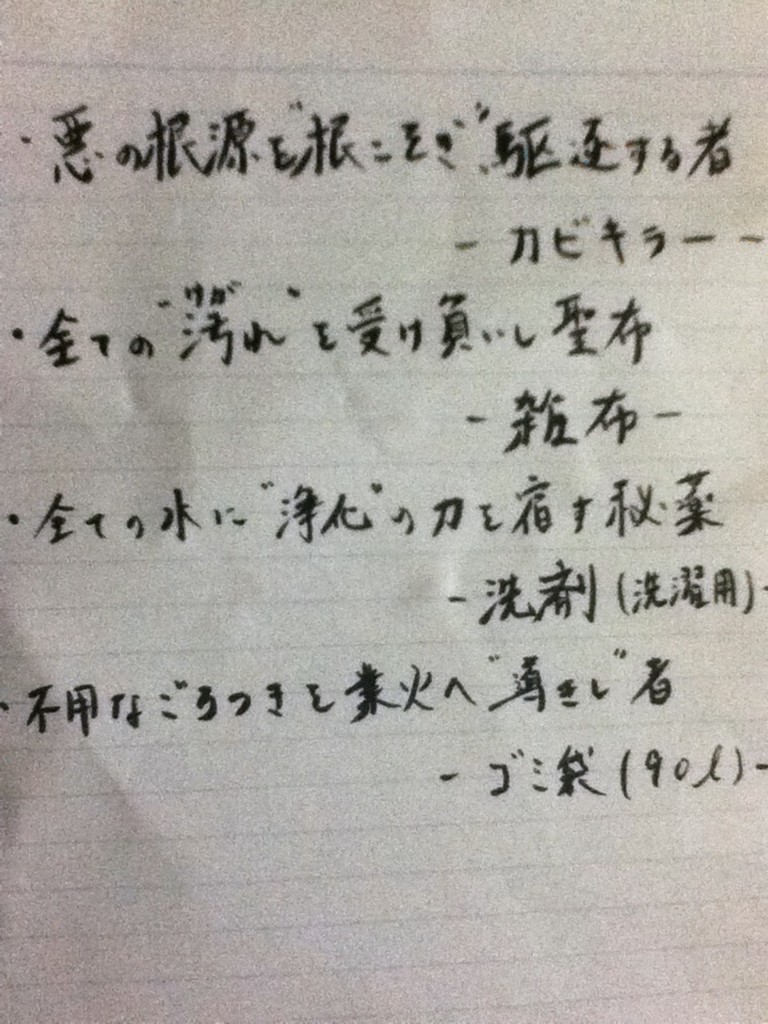 ・悪の根源を"根こそぎ"駆逐する者
－カビキラー－
・全ての"汚れ"を受け負いし聖布
けが
－雑布－
・全ての水に"浄化"の力を宿す秘薬
－洗剤(洗濯用)－
・不用なごろつきを業火へ"導きし"者
－ゴミ袋(90l)－